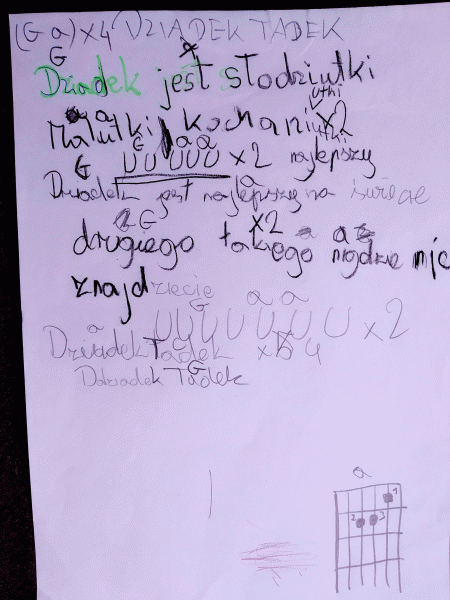 (G a)x4 DZIADEK TADEK
G
Dziadek jest słodziutki
a a utki
Malutki kochaniutki x2
G a a
U U U U U x2 najlepszy
G a
Dziadek jest najlepszy na świecie
G x2 a a
drugiego takiego nigdzie nie
znajdziecie
G a a
U U U U U U U x2
a
Dziadek Tadek x 4
G
Dziadek Tadek
a
2 3 1